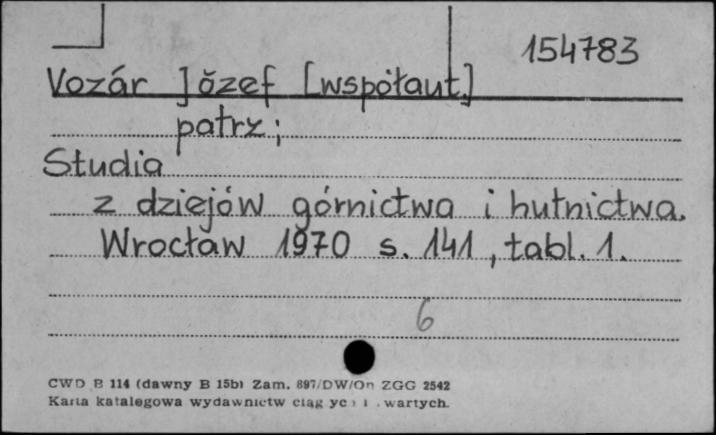 154783
Vozár Józef [współaut]
patrz;
Studia
z dziejów górnictwa i hutnictwa.
Wrocław 1970 s. 141, tabl. 1.
6
CWD B 114 (dawny B 15b) Zam. 897/DW/On ZGG 2542
Karta katalogowa wydawnictw ciąg yc i wartych.